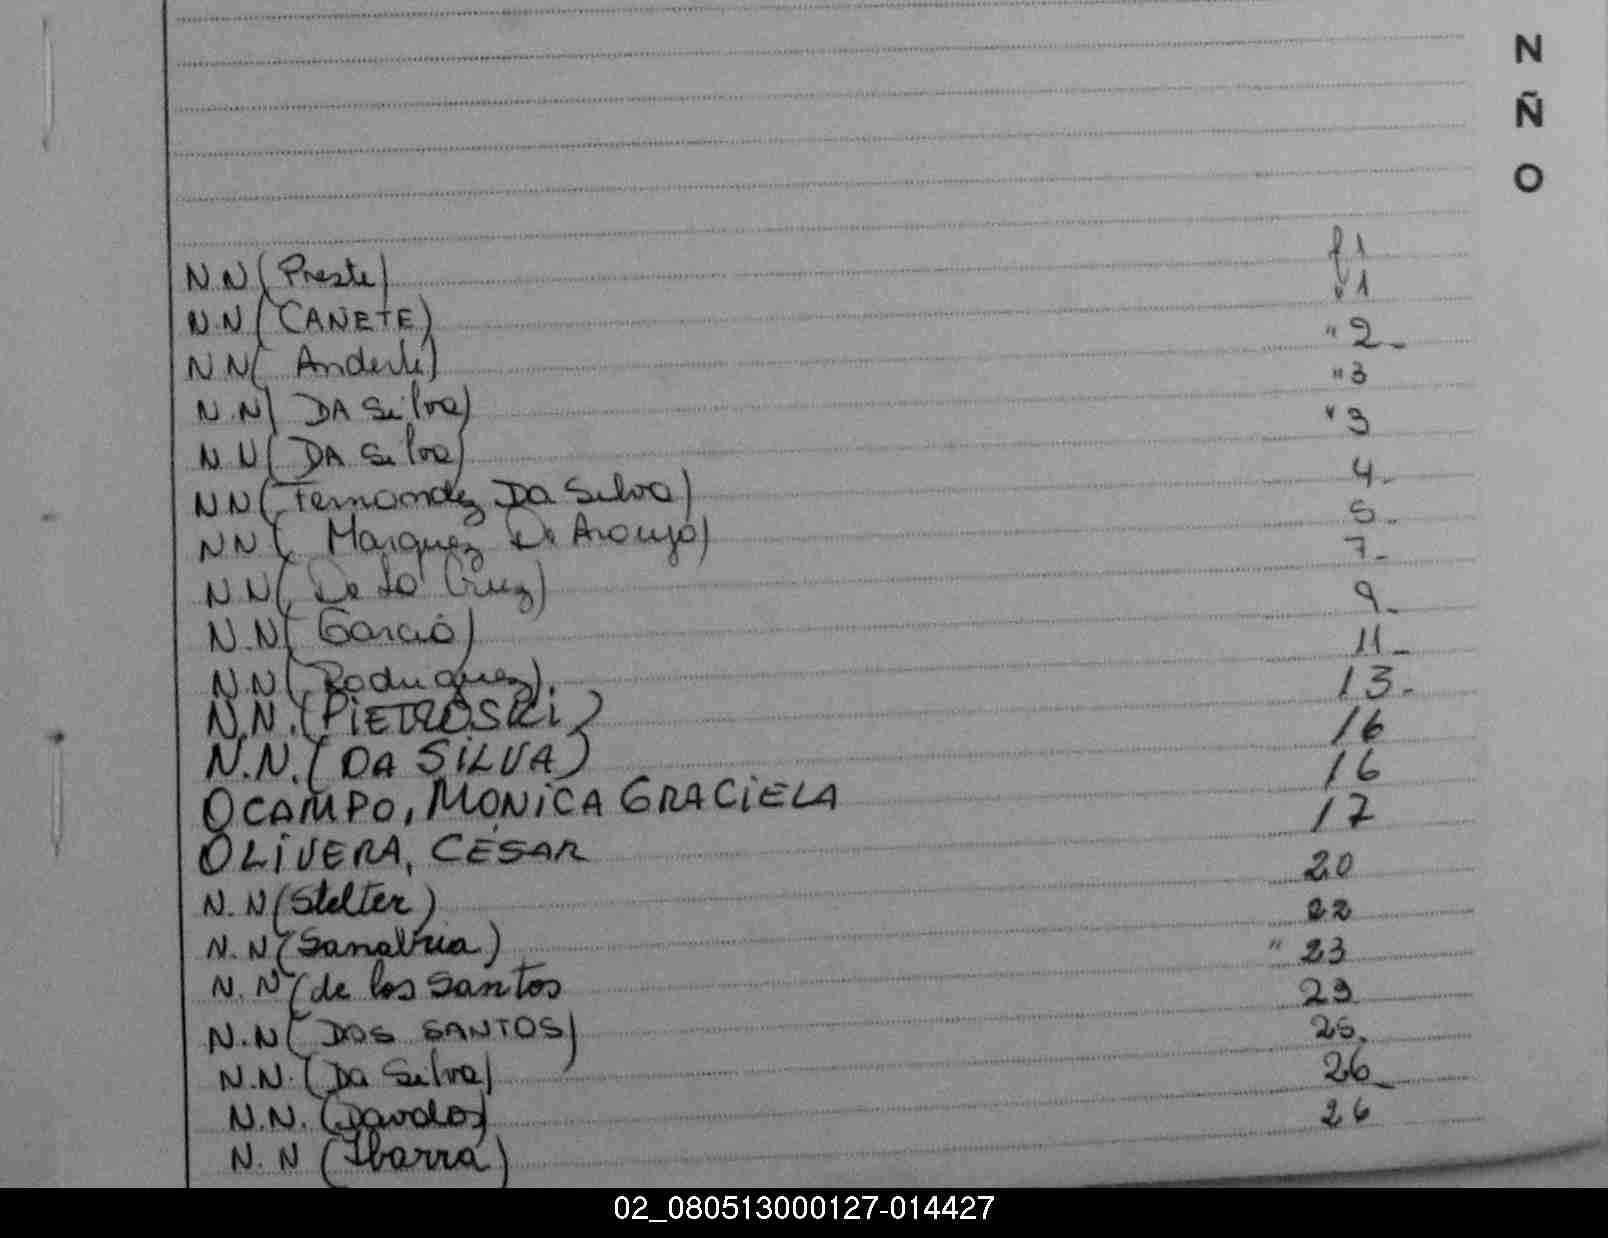 N
Ñ
O
N.N (Preste) f 1
N.N (CANETE) " 1
N N ( Anderle) " 2-
N.N ( DA Silva) " 3
N N ( DA Silva) " 3
N N ( Fernandez Da Silva) 4-
N N ( Marquez De Araujo) 5-
N N ( De La Cruz) 7-
N.N ( Garcia) 9-
N.N ( Rodriguez). 11-
N.N. (PIETROSKI) 13-
N.N. (DA SILVA) 16
OCAMPO, MONICA GRACIELA 16
OLIVERA, CÉSAR 17
N.N (Stelter) 20
N.N (Sanabria) 22
N.N (de los Santos " 23
N.N ( DOS SANTOS) 23
N.N. (Da Silva) 25.
N.N. (Davalos) 26-
N.N (Ibarra) 26
02_080513000127-014427